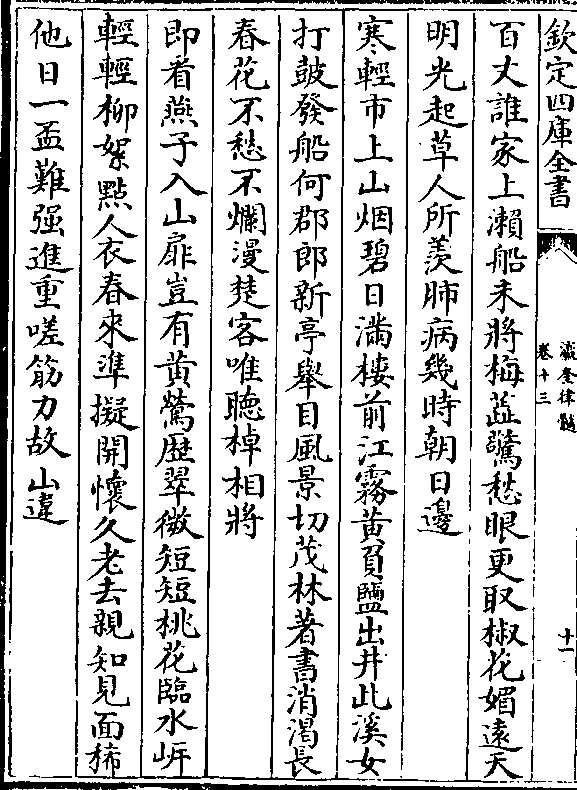 欽定四庫全書
瀛奎律髓
卷十三
十一
百丈誰家上瀨船未將梅蕋驚愁眼更取椒花媚遠天
明光起草人所羨肺病幾時朝日邊
寒輕市上山烟碧日滿樓前江霧黄負鹽出井此溪女
打鼓發船何郡郎新亭舉目風景切茂林著書消渴長
春花不愁不爛漫楚客唯聽棹相將
即看燕子入山扉豈有黄鶯歷翠微短短桃花臨水岸
輕輕柳絮點人衣春來準擬開懐久老去親知見面稀
他日一盃難强進重嗟筋力故山違